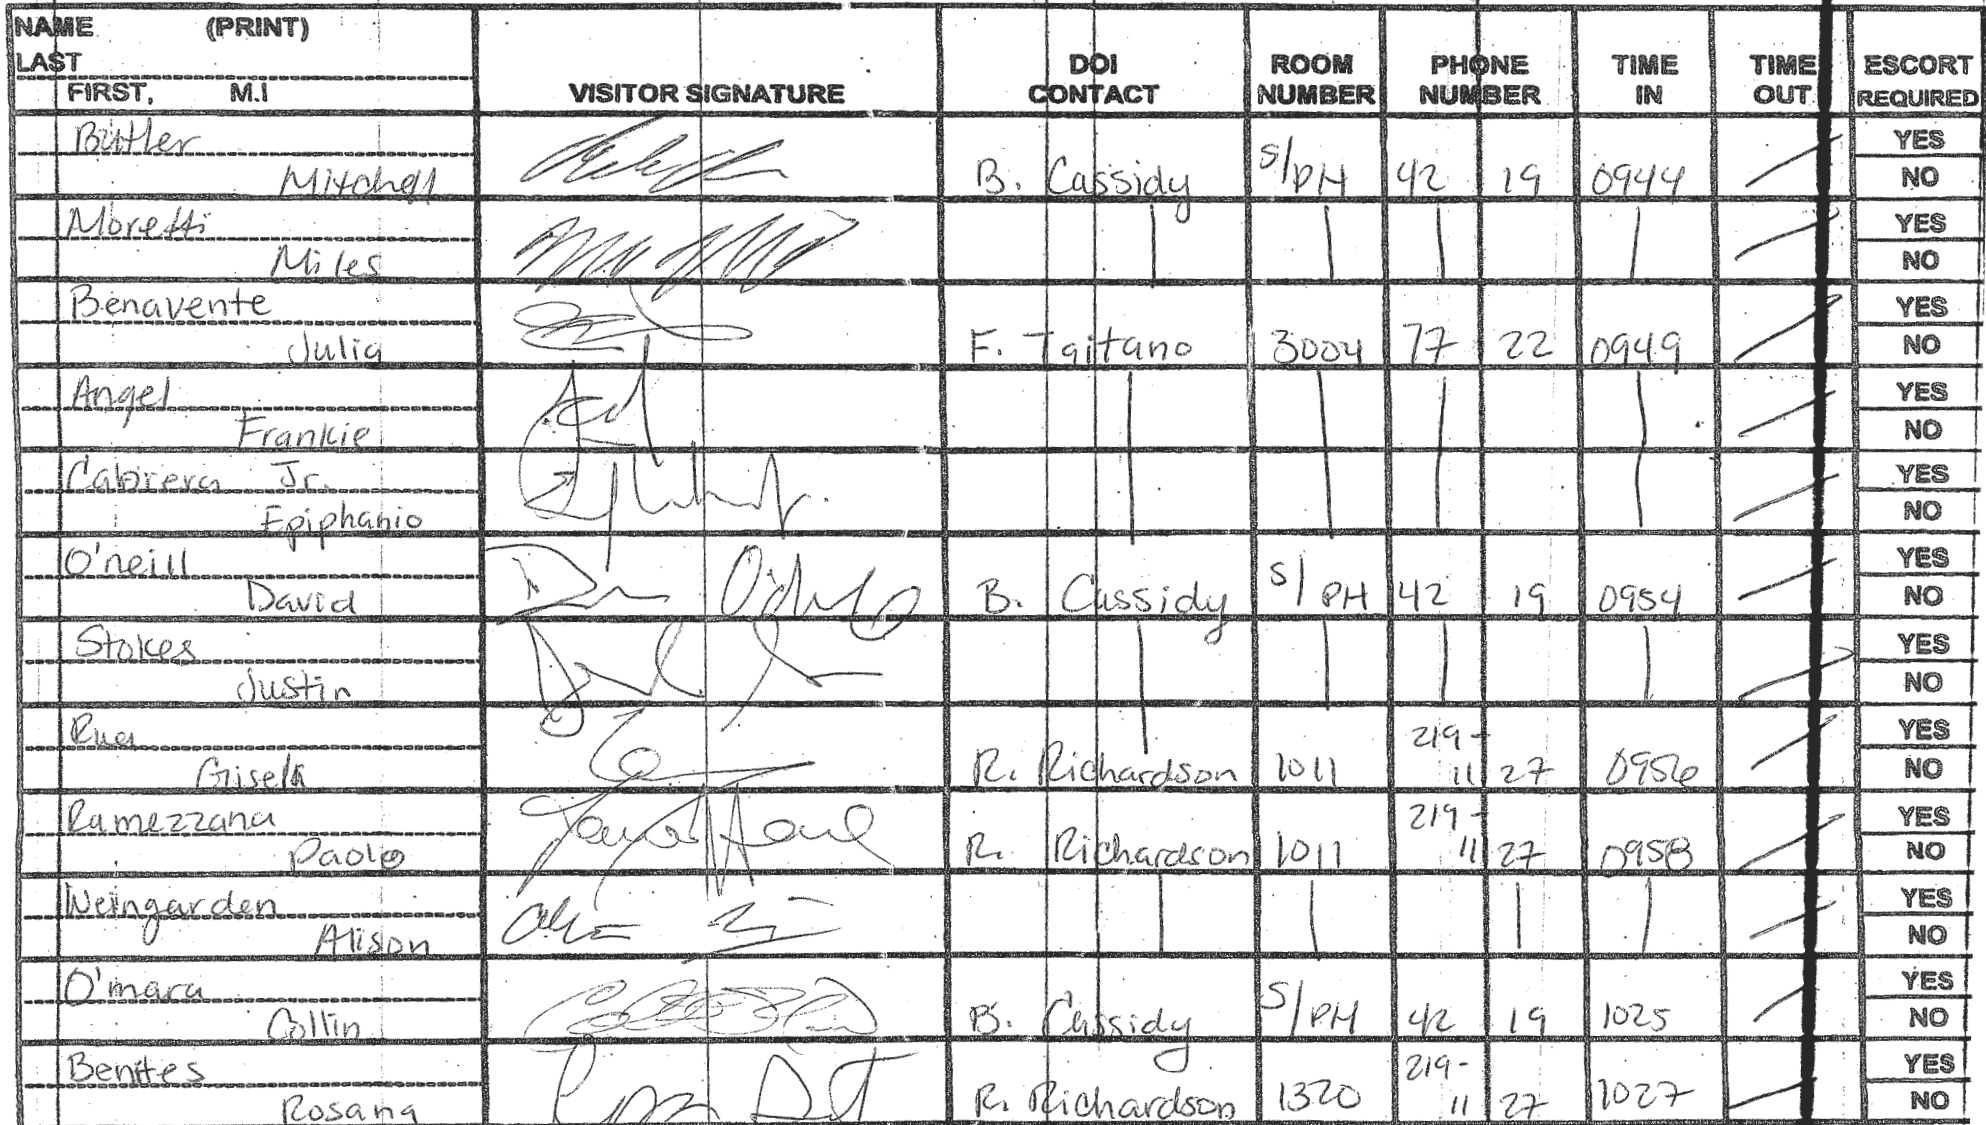 NAME (PRINT)
LAST
FIRST, M.I
VISITOR SIGNATURE
DOI CONTACT
ROOM NUMBER
PHONE NUMBER
TIME IN
TIME OUT
ESCORT REQUIRED
Butler
Mitchell B. Cassidy S/PH 42 19 0944 YES NO
Moretti
Miles YES NO
Benavente
Julia F. Taitano 3004 77 22 0949 YES NO
Angel
Frankie YES NO
Cabrera Jr.
Epiphanio YES NO
O'neill
David B. Cassidy S/PH 42 19 0954 YES NO
Stokes
Justin YES NO
Rua
Gisela R. Richardson 1011 219-1127 0956 YES NO
Ramezzana
Paolo R. Richardson 1011 219-1127 0958 YES NO
Weingarden
Alison YES NO
O'mara
Collin B. Cassidy S/PH 42 19 1025 YES NO
Benites
Rosana R. Richardson 1320 219-1127 1027 YES NO